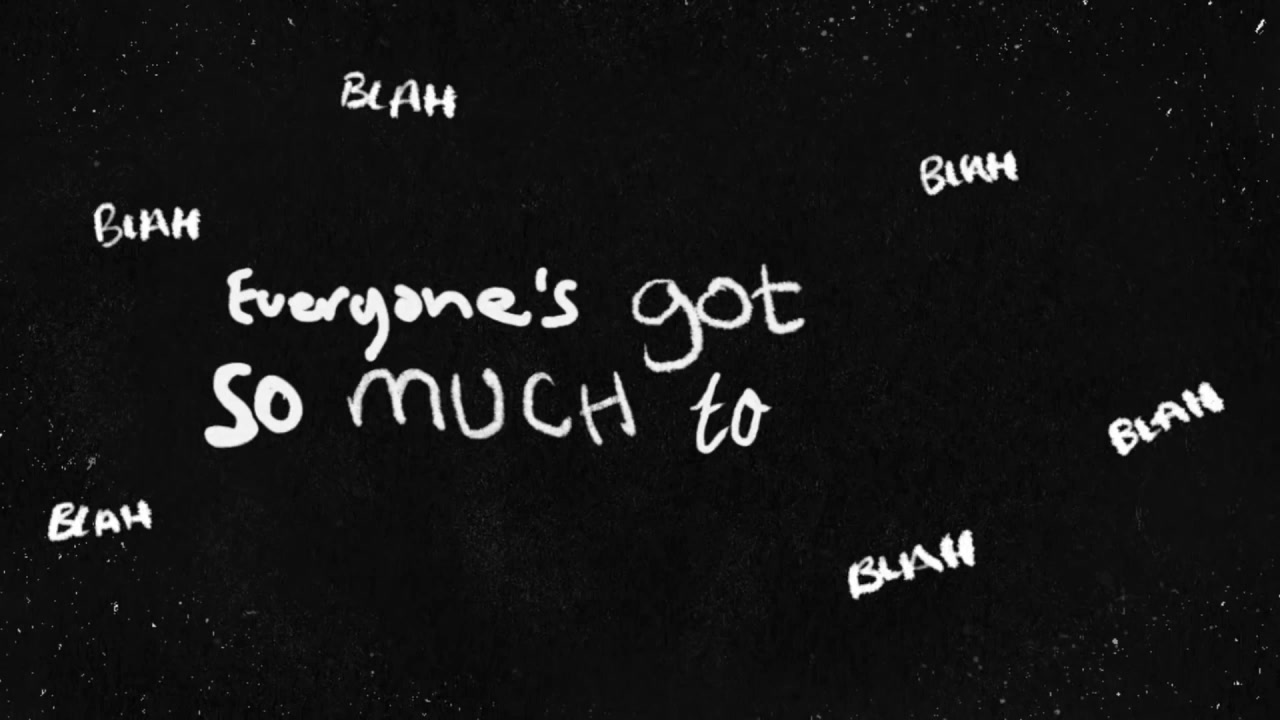 BLAH
BLAH
BLAH
Everyone's got
SO MUCH to
BLAH
BLAH
BLAH